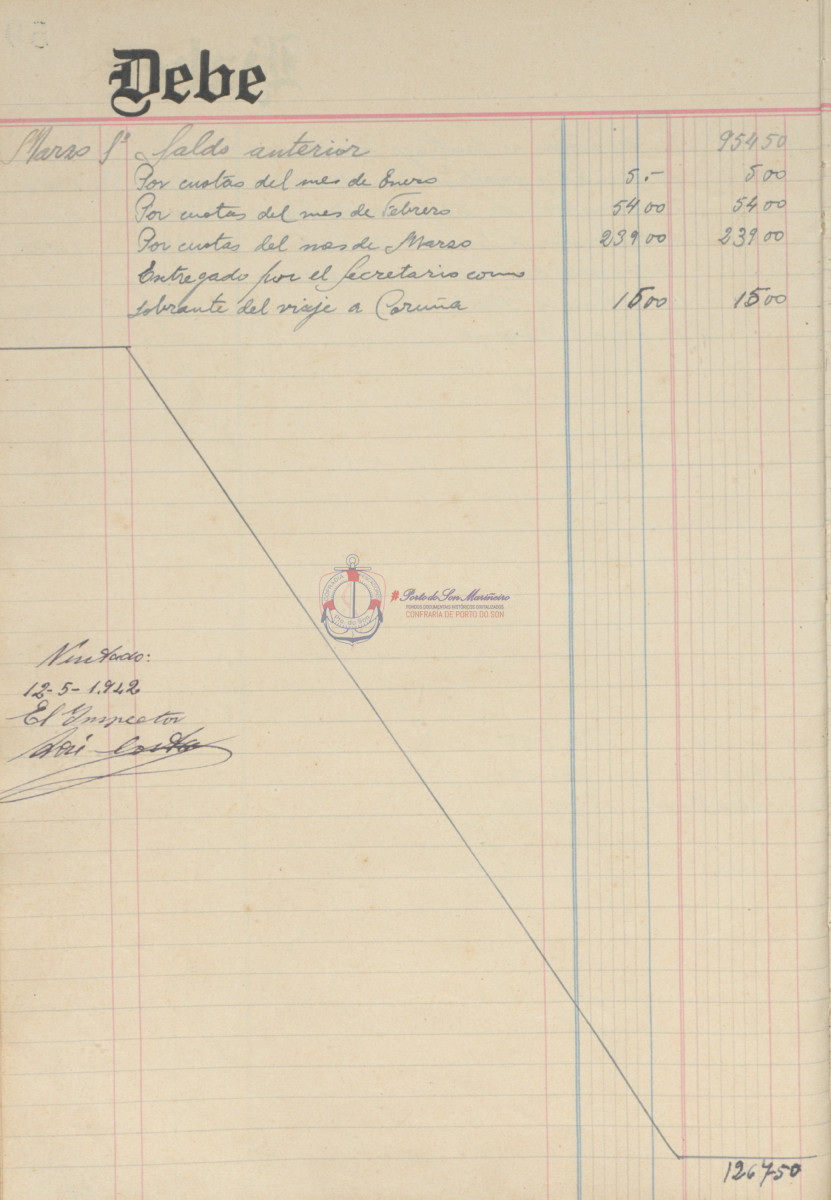 Debe
Marzo 1º Saldo anterior 954 50
Por cuotas del mes de Enero 5.- 5 00
Por cuotas del mes de Febrero 54 00 54 00
Por cuotas del mes de Marzo 239 00 239 00
Entregado por el Secretario como
sobrante del viaje a Coruña 15 00 15 00
CONFRARÍA PESCADORES
Pto. do Son
Porto do Son Mariñeiro
FONDOS DOCUMENTAIS HISTÓRICOS DIXITALIZADOS
CONFRARÍA DE PORTO DO SON
Visitado:
12-5-1.942
El Inspector
José Costa
1267 50